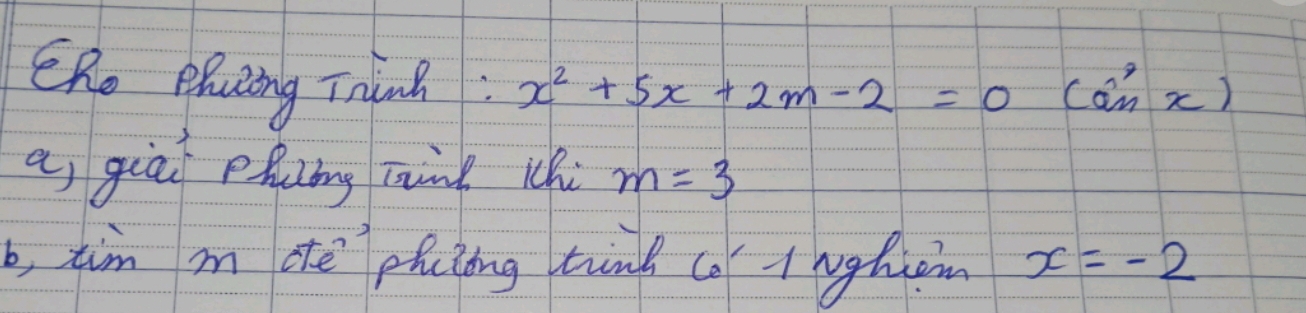 Cho phương trình : x² + 5x + 2m - 2 = 0 (ẩn x)
a, giải phương trình khi m = 3
b, tìm m để phương trình có 1 nghiệm x = -2